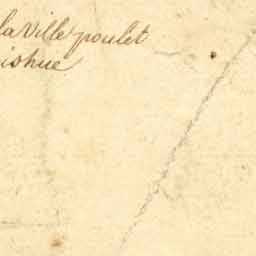 la Ville poulet
ishue